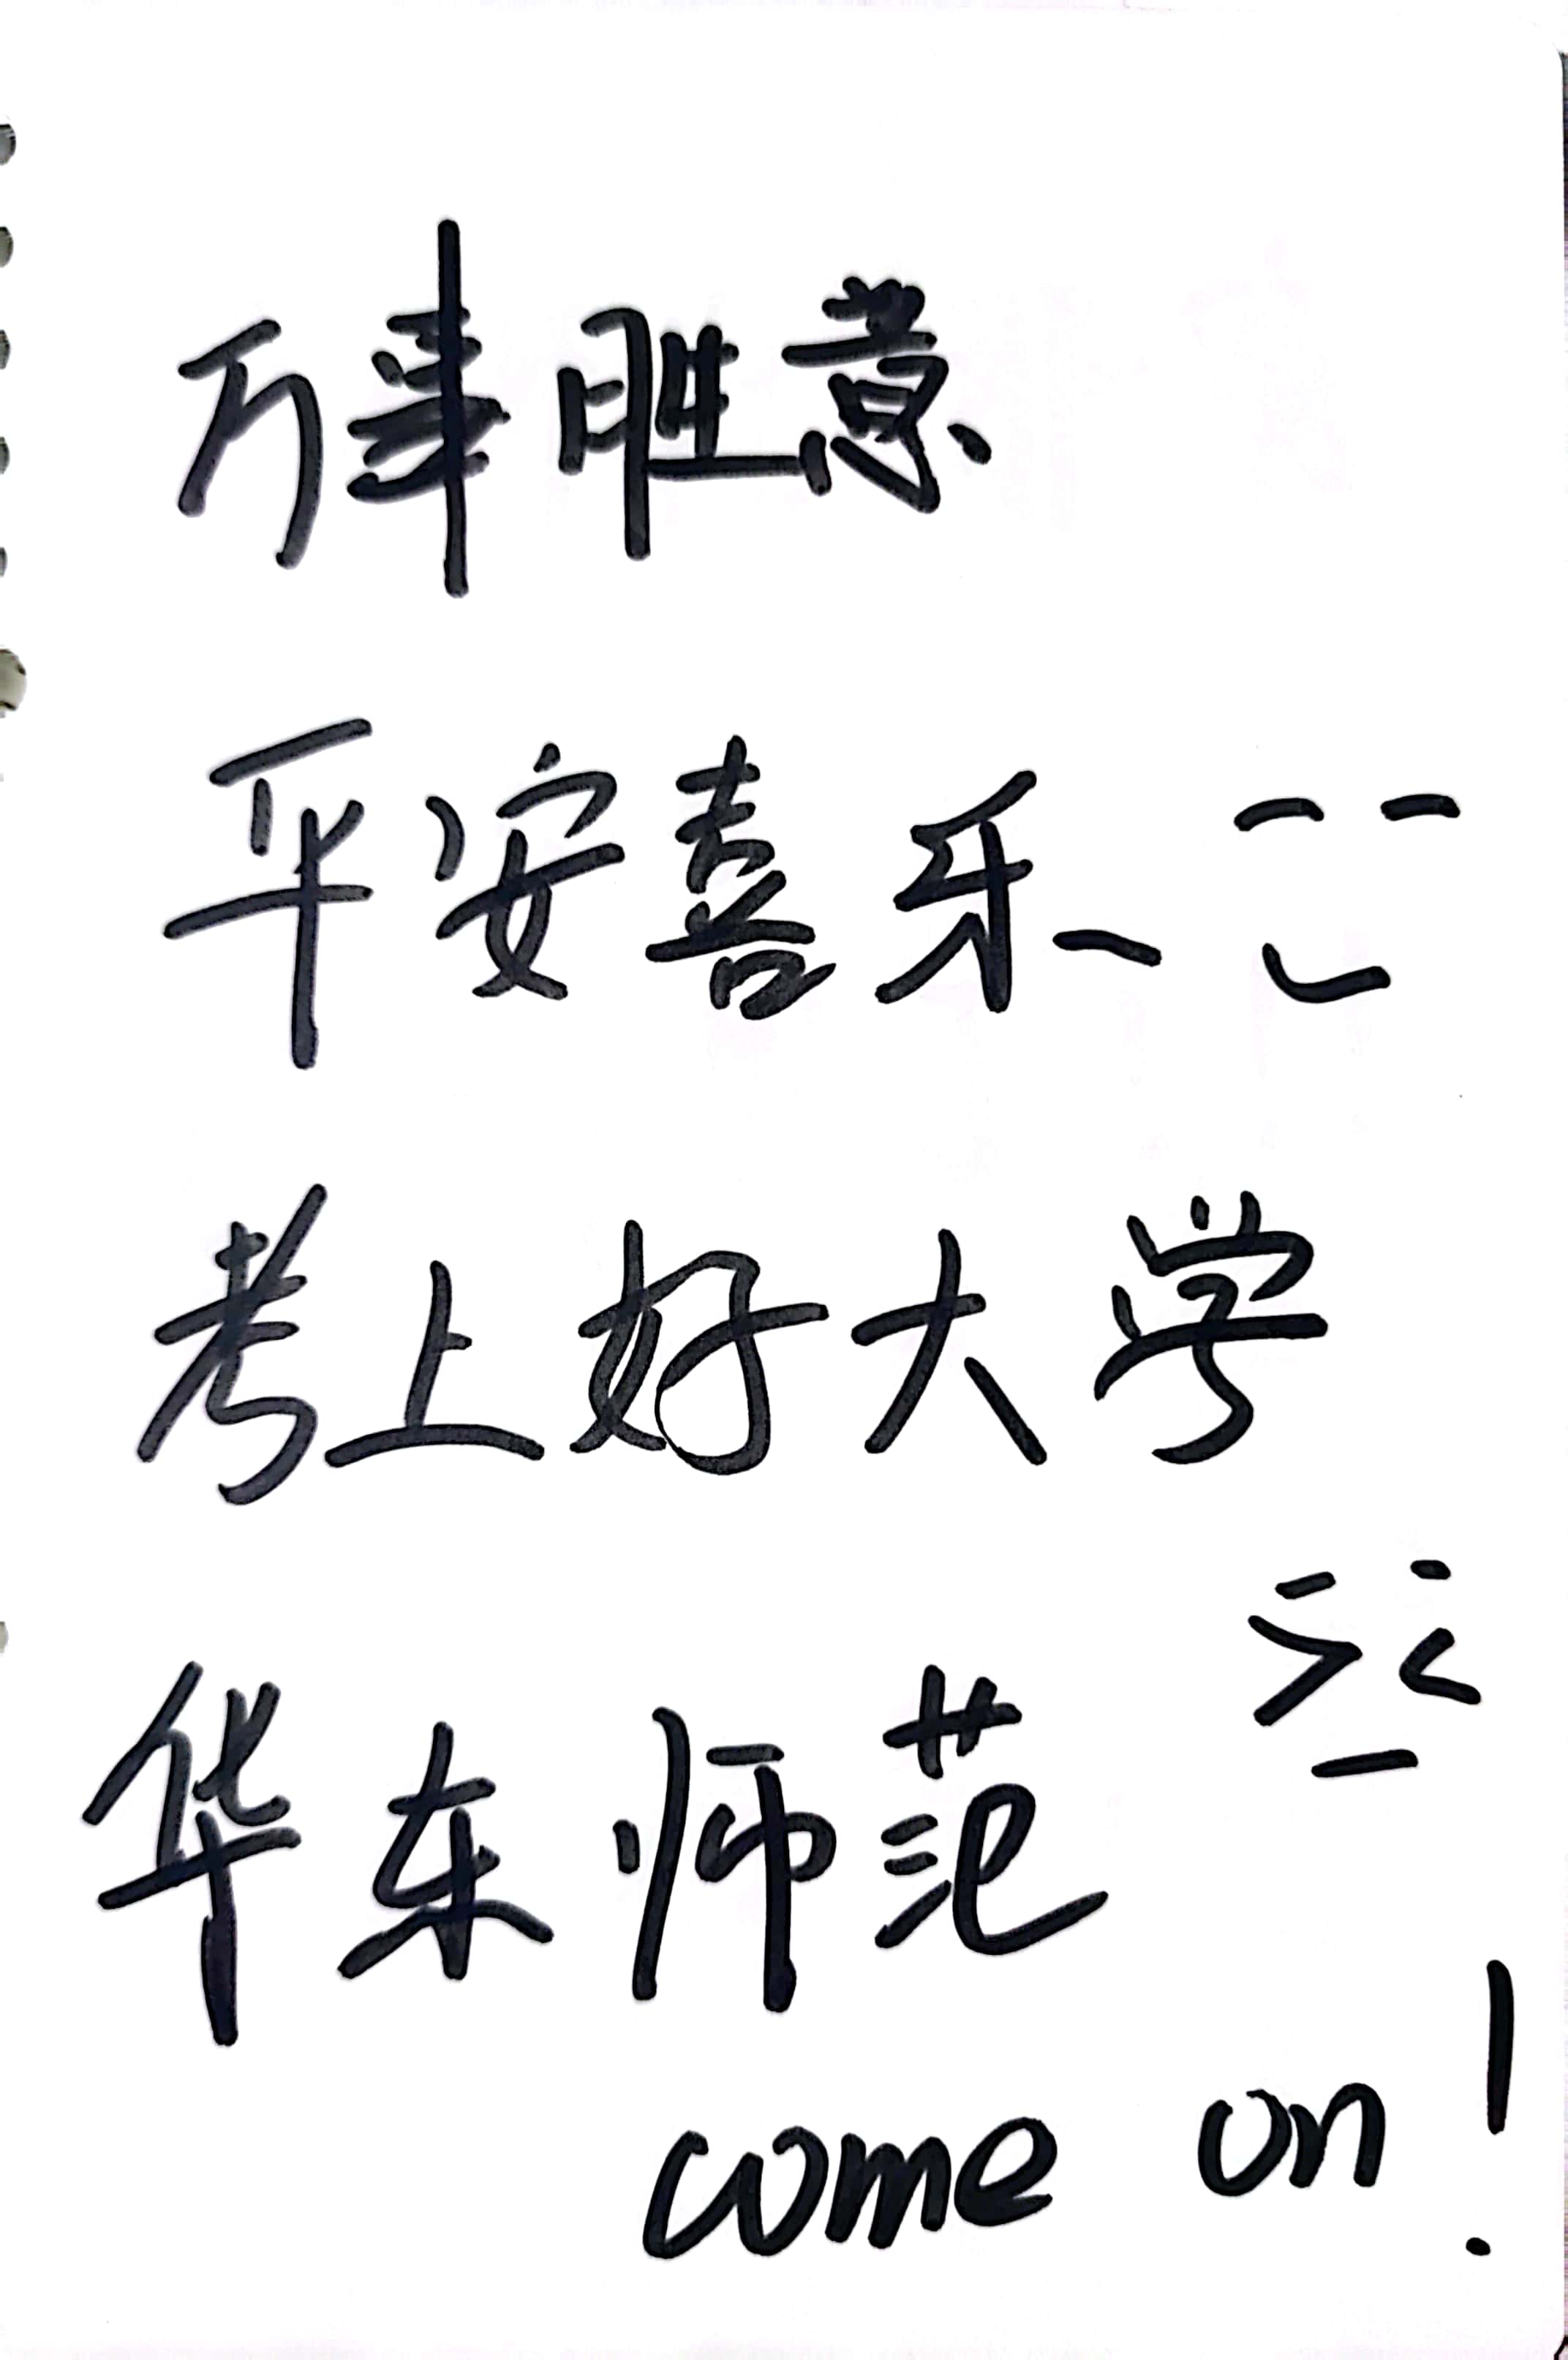 万事胜意
平安喜乐
考上好大学
华东师范
come on!